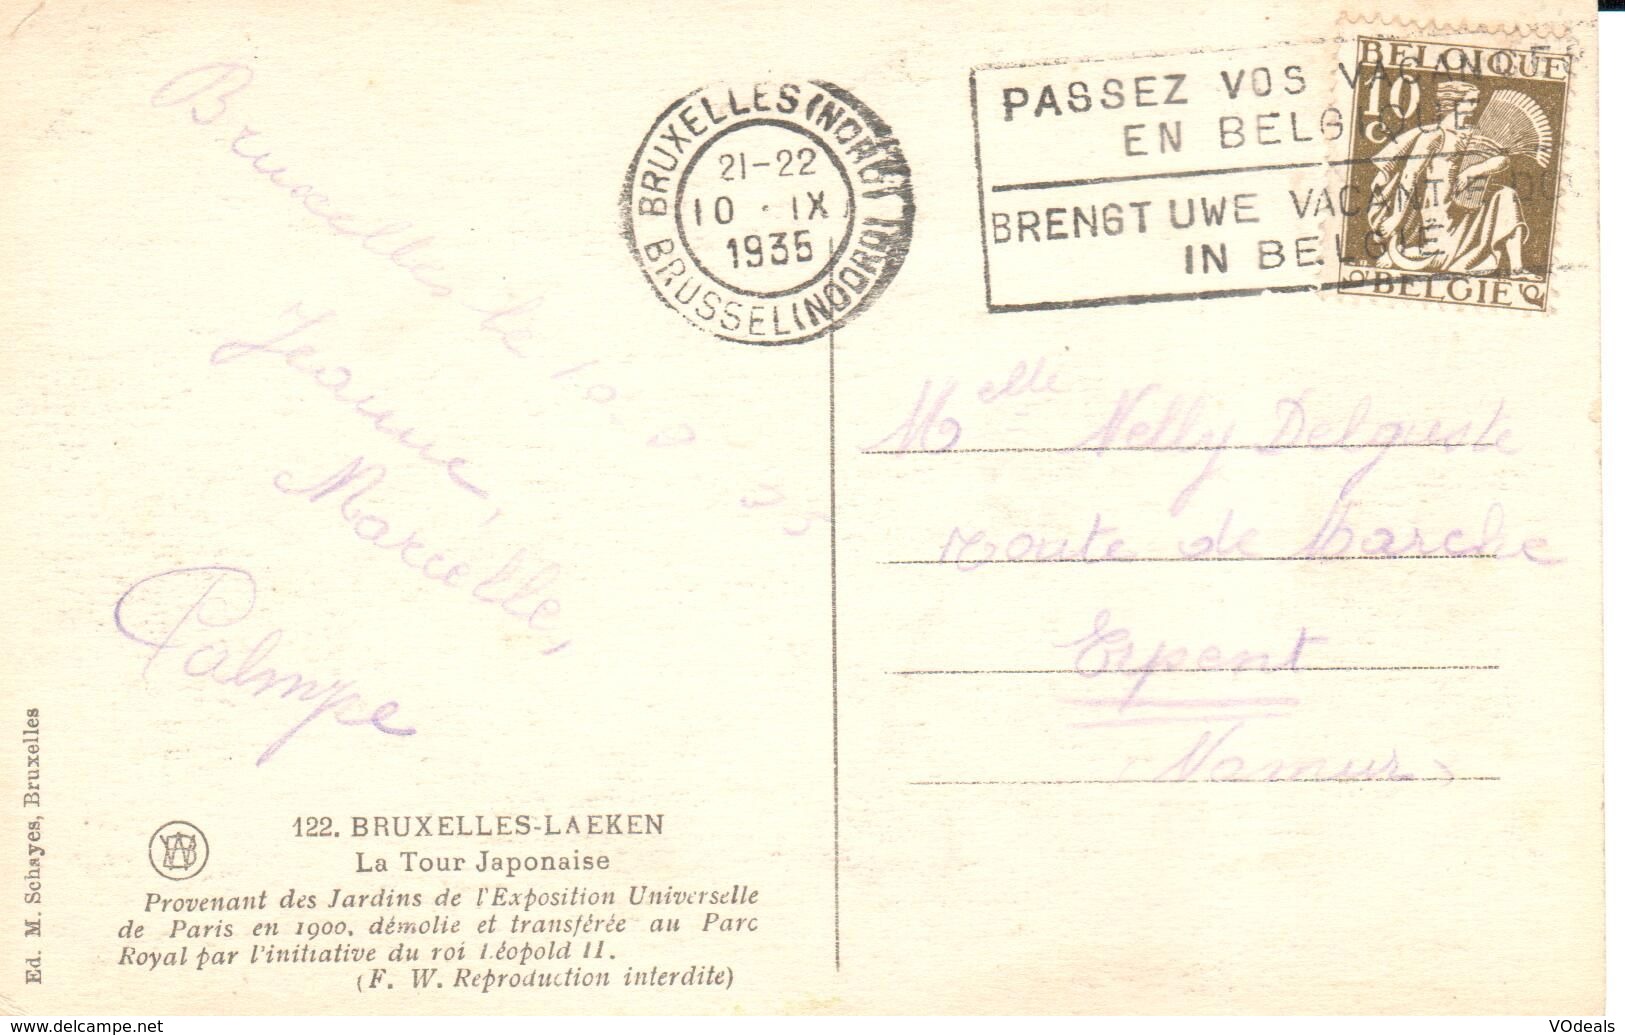 BRUXELLES (NORD)
21-22
10 · IX
1935
BRUSSEL (NOORD)
PASSEZ VOS VACANCES
EN BELGIQUE
BRENGT UWE VACANTIE DOOR
IN BELGIË
BELGIQUE
10
C
BELGIË
Bruxelles le 10-9 35
Jeanne,
Marcelle,
Palmyre
Melle Nelly
Route de Marche
Erpent
Namur
122. BRUXELLES-LAEKEN
La Tour Japonaise
Provenant des Jardins de l'Exposition Universelle
de Paris en 1900, démolie et transférée au Parc
Royal par l'initiative du roi Léopold II.
(F. W. Reproduction interdite)
Ed. M. Schayes, Bruxelles
www.delcampe.net
VOdeals